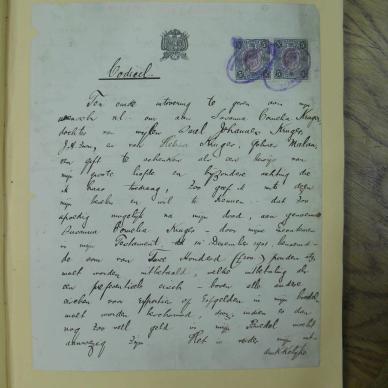 Codicil.
Ten einde uitvoering te geven aan mijn
wensch nl. om aan Susanna Cornelia Kruger,
dochter van mijlen Karel Johannes Kruger,
J.A. Zoon, en van Helena Kruger, geboren Malan,
een gift te schenken als een bewijs van
mijn groote liefde en byzondere achting die
ik haar toedraag, Zoo geef ik met dezen
mijn bevelen en wil te kennen dat zoo
spoedig mogelijk na mijn dood, aan genoemde
Susanna Cornelia Kruger door mijne Executeuren
in mijn Testament, in December 1901, benoemd
de som van Twee Honderd ponden stg.
moet worden uitbetaald, welke uitbetaling als
een preferentie eisch boven alle andere
eischen voor Erfportie of Erfgelden in mijn boedel
moet worden beschouwd, indien er dan
nog zoo veel geld in mijn Boedel mocht
aanwezig zijn. Het is verder mijn